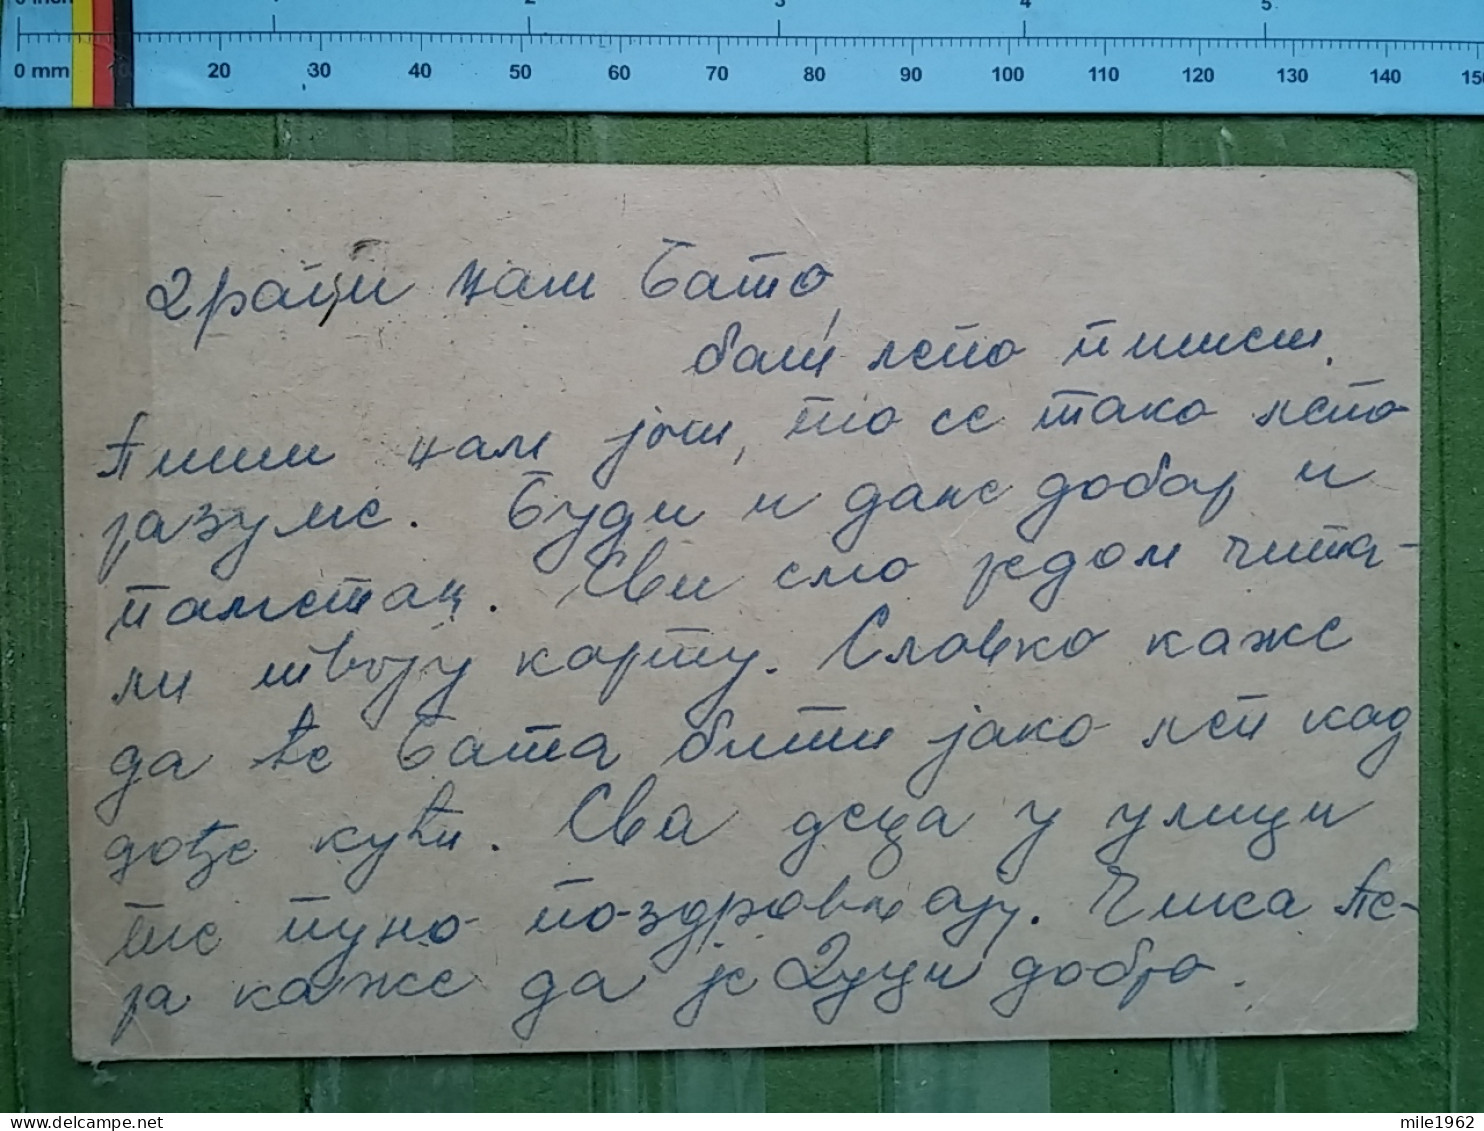 0 inch 1 2 3 4 5
0 mm 10 20 30 40 50 60 70 80 90 100 110 120 130 140 150
Драги нам Бато,
баш лепо пишеш.
Пиши нам још, то се тако лепо
разуме. Буди и даље добар и
паметан. Сви смо редом чита-
ли твоју карту. Славко каже
да ће Бата бити јако леп кад
дође кући. Сва деца у улици
те пуно поздрављају. Чика Пе-
ра каже да је Дуци добро.
mile1962